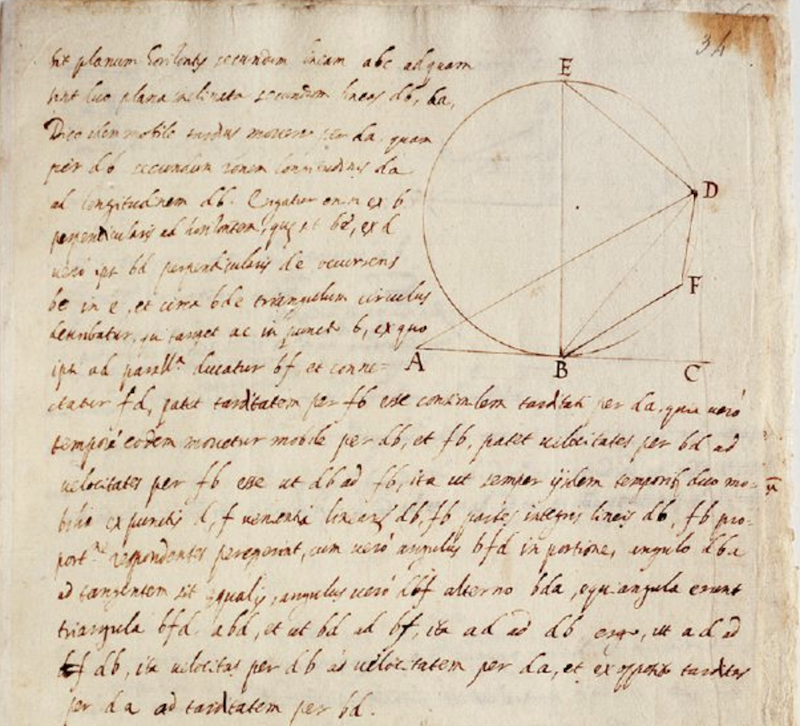 34
Sit planum horizontis secundum lineam abc ad quam
sint duo plana inclinata secundum lineas db, da,
Dico idem mobile tardius moveri per da quam
per db secundum ronem longitudinis da
ad longitudinem db. Erigatur enim ex b
perpendicularis ad horizontem, quę sit be, ex d
vero ipsi bd perpendicularis de occurrens
be in e, et circa bde triangulum circulus
describatur, qui tanget ac in puncto b, ex quo
ipsi ad parall.a ducatur bf, et conne=
ctatur fd, patet tarditatem per fb esse consimilem tarditati per da. quia vero
tempore eodem movetur mobile per db, et fb, patet velocitates per bd ad
velocitates per fb esse ut db ad fb, ita ut semper ijsdem temporib. duo mo=
bilia ex punctis d, f venientia linearum db, fb partes integris lineis db, fb pro=
port.ne respondentes peregerint, cum vero angulus bfd in portione, angulo dba
ad tangentem sit ęqualis, angulus vero dbf alterno bda, equiangula erunt
triangula bfd, abd, et ut bd ad bf, ita ad ad db ergo, ut ad ad
db, ita velocitas per db ad velocitatem per da, et ex opposito tarditas
per da ad tarditatem per bd.
E
D
F
A
B
C